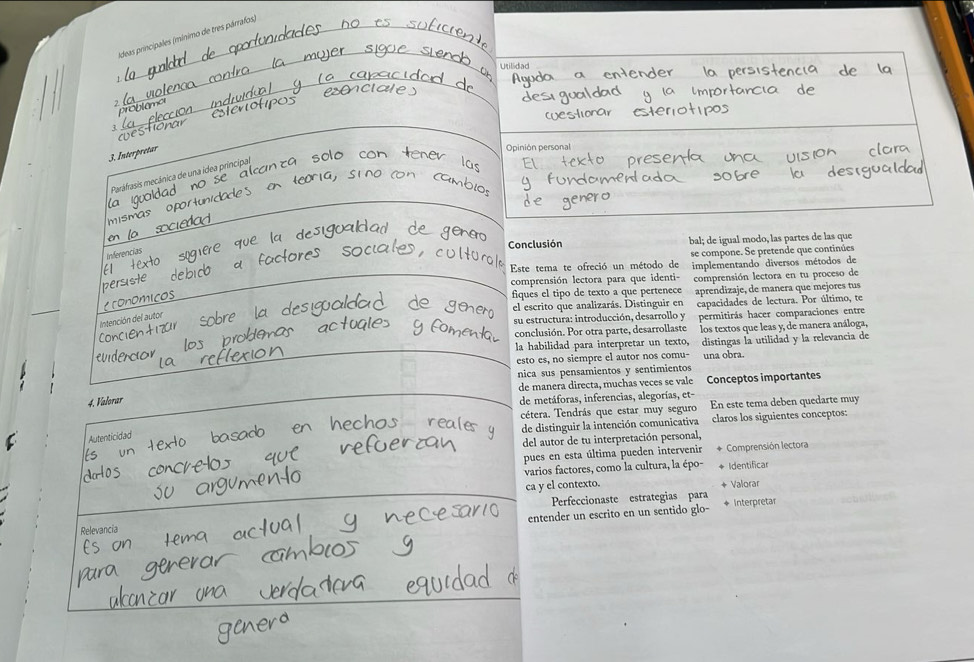 Ideas principales (mínimo de tres párrafos)
1. la gualdad de oportunidades no es suficiente
2. la violencia contra la mujer sigue siendo un
problema
3. la eleccion individual y la capacidad de
cuestionar esteriotipos esenciales
3. Interpretar
Paráfrasis mecánica de una idea principal
la igualdad no se alcanza solo con tener las
mismas oportunidades en teoria, sino con cambios
en la sociedad
Inferencias
El texto sugiere que la desigualdad de genero
persiste debido a factores sociales, culturale
economicos
Intención del autor
concientizar sobre la desigualdad de genero
evidenciar los problemas actuales y fomentar
la reflexion
4. Valorar
Autenticidad
Es un texto basado en hechos reales y
datos concretos que refuerzan
su argumento
Relevancia
Es un tema actual y necesario
para generar cambios y
alcanzar una verdadera equidad de
genero
Utilidad
Ayuda a entender la persistencia de la
desigualdad y la importancia de
cuestionar esteriotipos
Opinión personal
El texto presenta una vision clara
y fundamentada sobre la desigualdad
de genero
Conclusión
Este tema te ofreció un método de
comprensión lectora para que identi-
fiques el tipo de texto a que pertenece
el escrito que analizarás. Distinguir en
su estructura: introducción, desarrollo y
conclusión. Por otra parte, desarrollaste
la habilidad para interpretar un texto,
esto es, no siempre el autor nos comu-
nica sus pensamientos y sentimientos
de manera directa, muchas veces se vale
de metáforas, inferencias, alegorías, et-
cétera. Tendrás que estar muy seguro
de distinguir la intención comunicativa
del autor de tu interpretación personal,
pues en esta última pueden intervenir
varios factores, como la cultura, la épo-
ca y el contexto.
Perfeccionaste estrategias para
entender un escrito en un sentido glo-
bal; de igual modo, las partes de las que
se compone. Se pretende que continúes
implementando diversos métodos de
comprensión lectora en tu proceso de
aprendizaje, de manera que mejores tus
capacidades de lectura. Por último, te
permitirás hacer comparaciones entre
los textos que leas y, de manera análoga,
distingas la utilidad y la relevancia de
una obra.
Conceptos importantes
En este tema deben quedarte muy
claros los siguientes conceptos:
Comprensión lectora
Identificar
Valorar
Interpretar